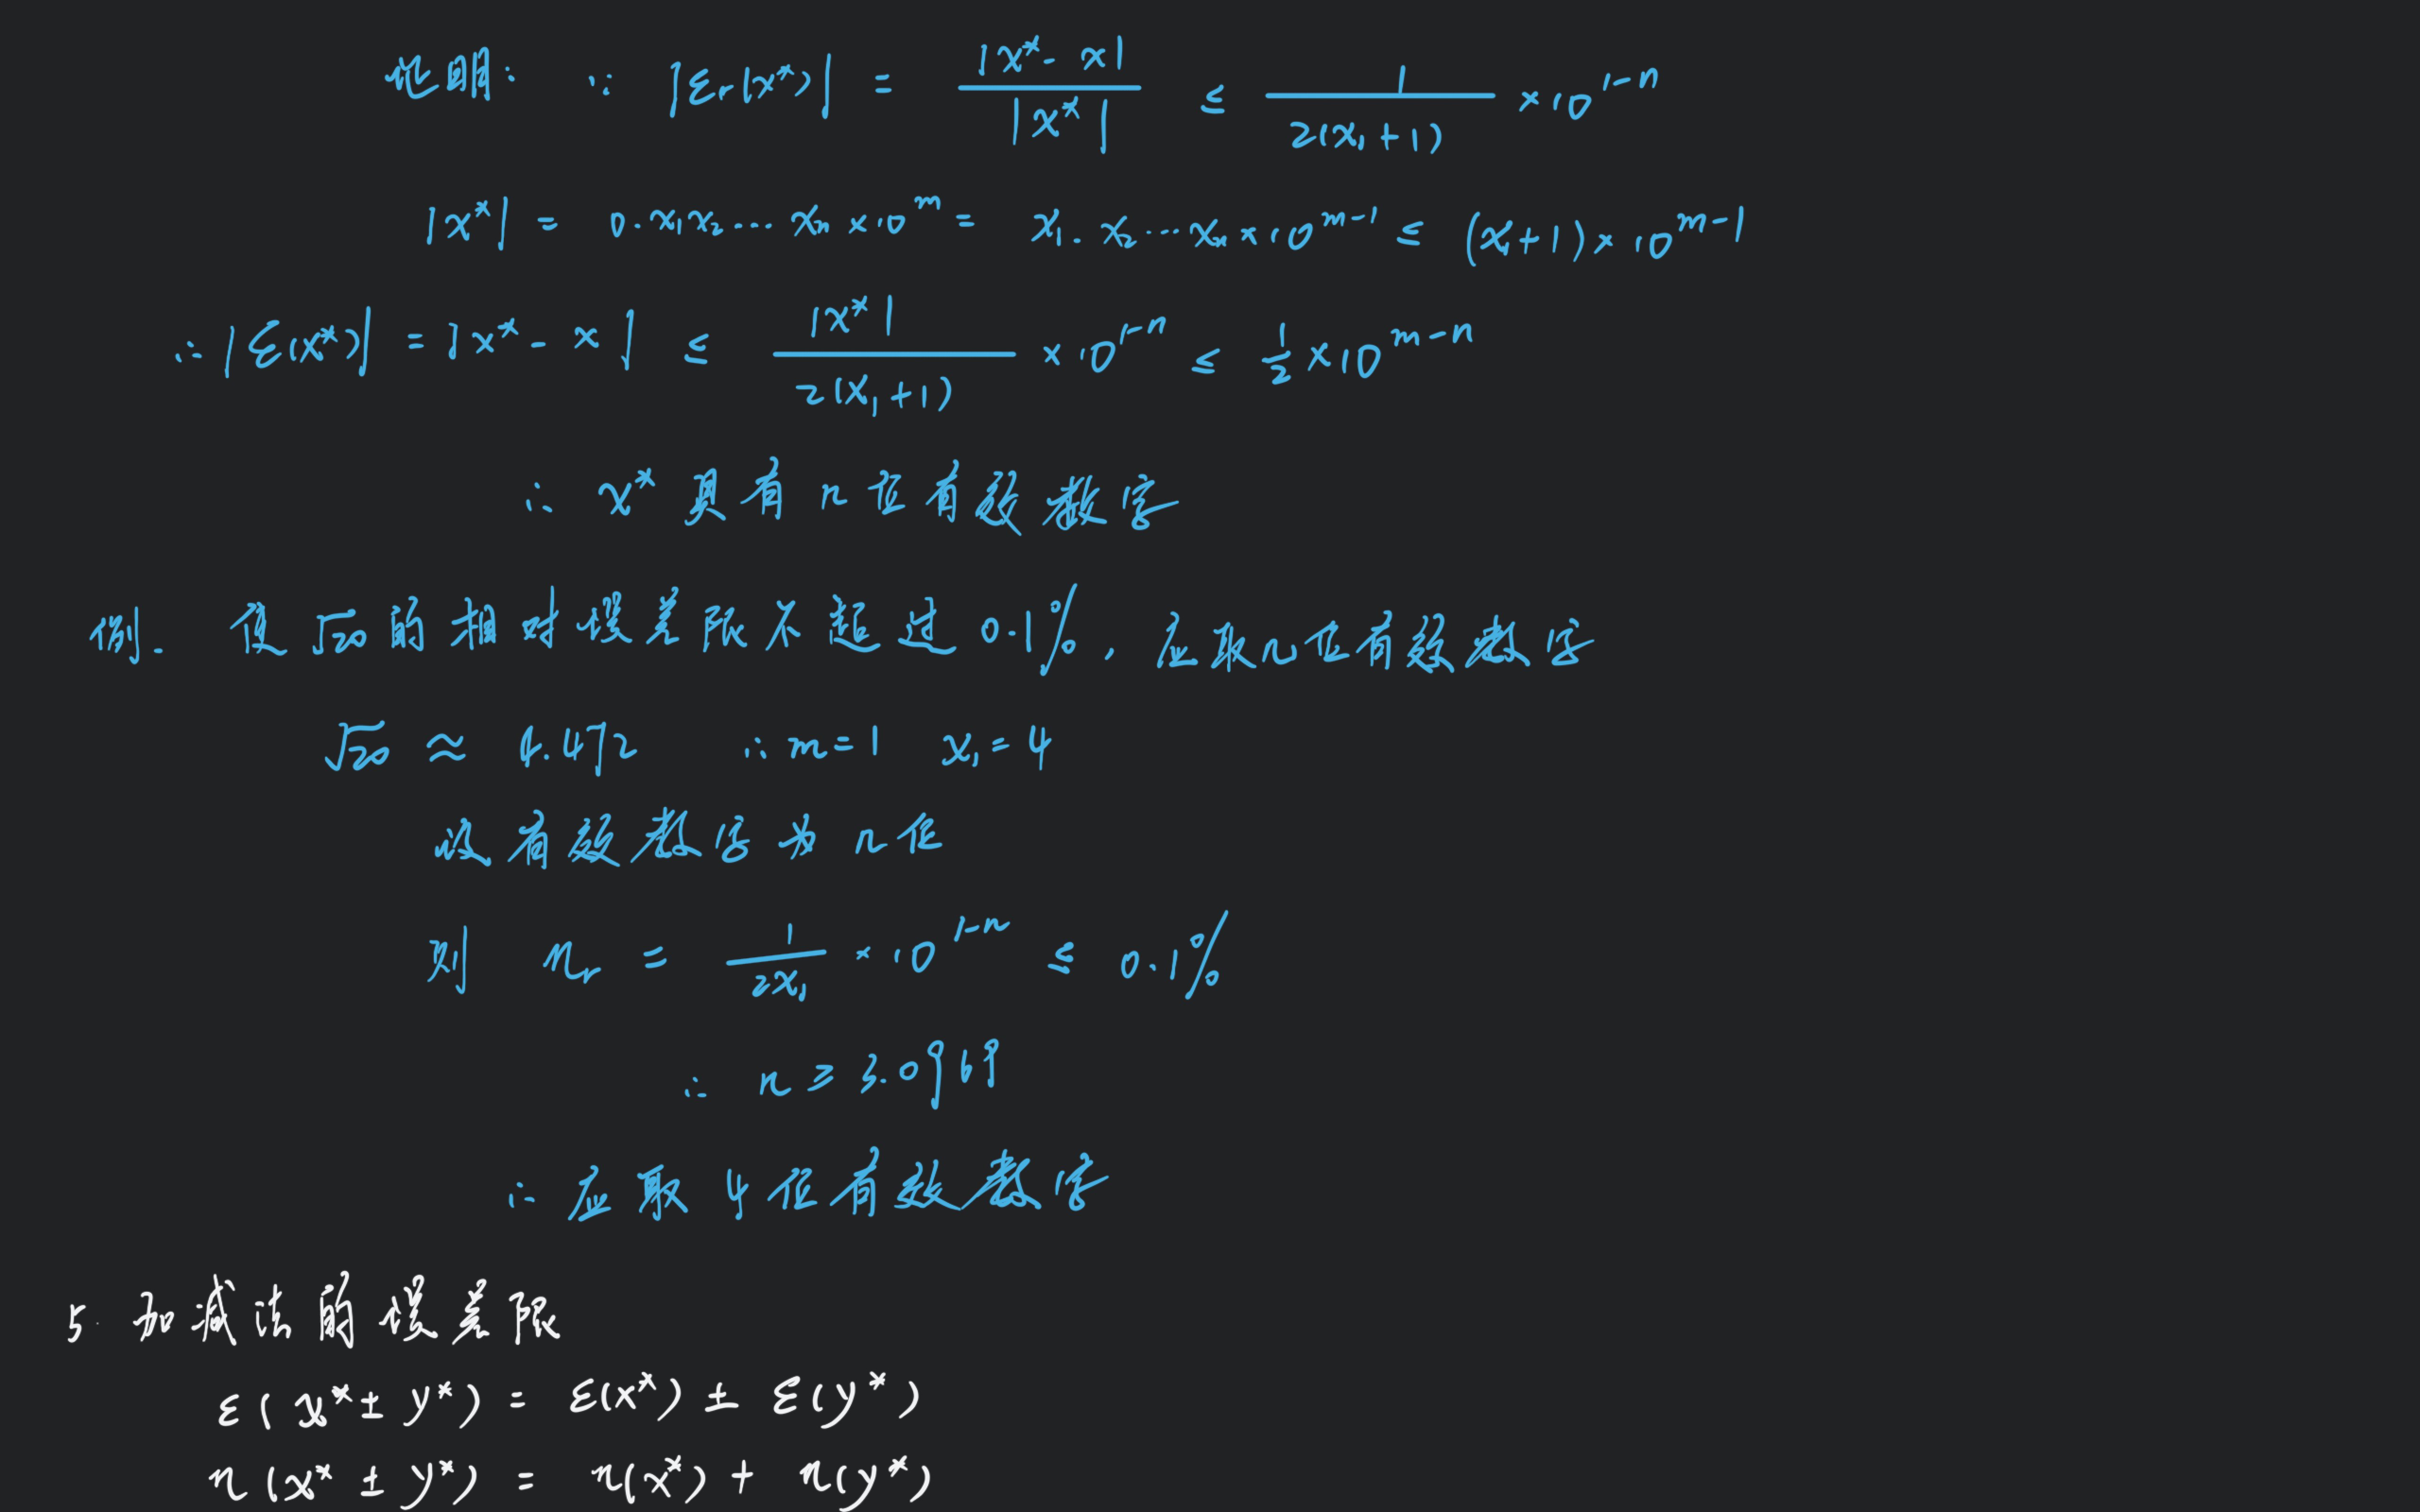 证明: ∵ |εr(x*)| = |x* - x| / |x*| ≤ 1 / 2(x₁+1) × 10^(1-n)
|x*| = 0.x₁x₂...xₙ × 10^m = x₁.x₂...xₙ × 10^(m-1) ≤ (x₁+1) × 10^(m-1)
∴ |ε(x*)| = |x* - x| ≤ |x*| / 2(x₁+1) × 10^(1-n) ≤ 1/2 × 10^(m-n)
∴ x* 具有 n 位有效数字
例. 使√20的相对误差限不超过0.1%, 应取几位有效数字
√20 ≈ 4.472 ∴ m=1 x₁=4
设有效数字为 n 位
则 ηr = 1 / 2x₁ × 10^(1-n) ≤ 0.1%
∴ n ≥ 3.0969
∴ 应取4位有效数字
5. 加减法的误差限
ε(x* ± y*) = ε(x*) ± ε(y*)
η(x* ± y*) = η(x*) + η(y*)